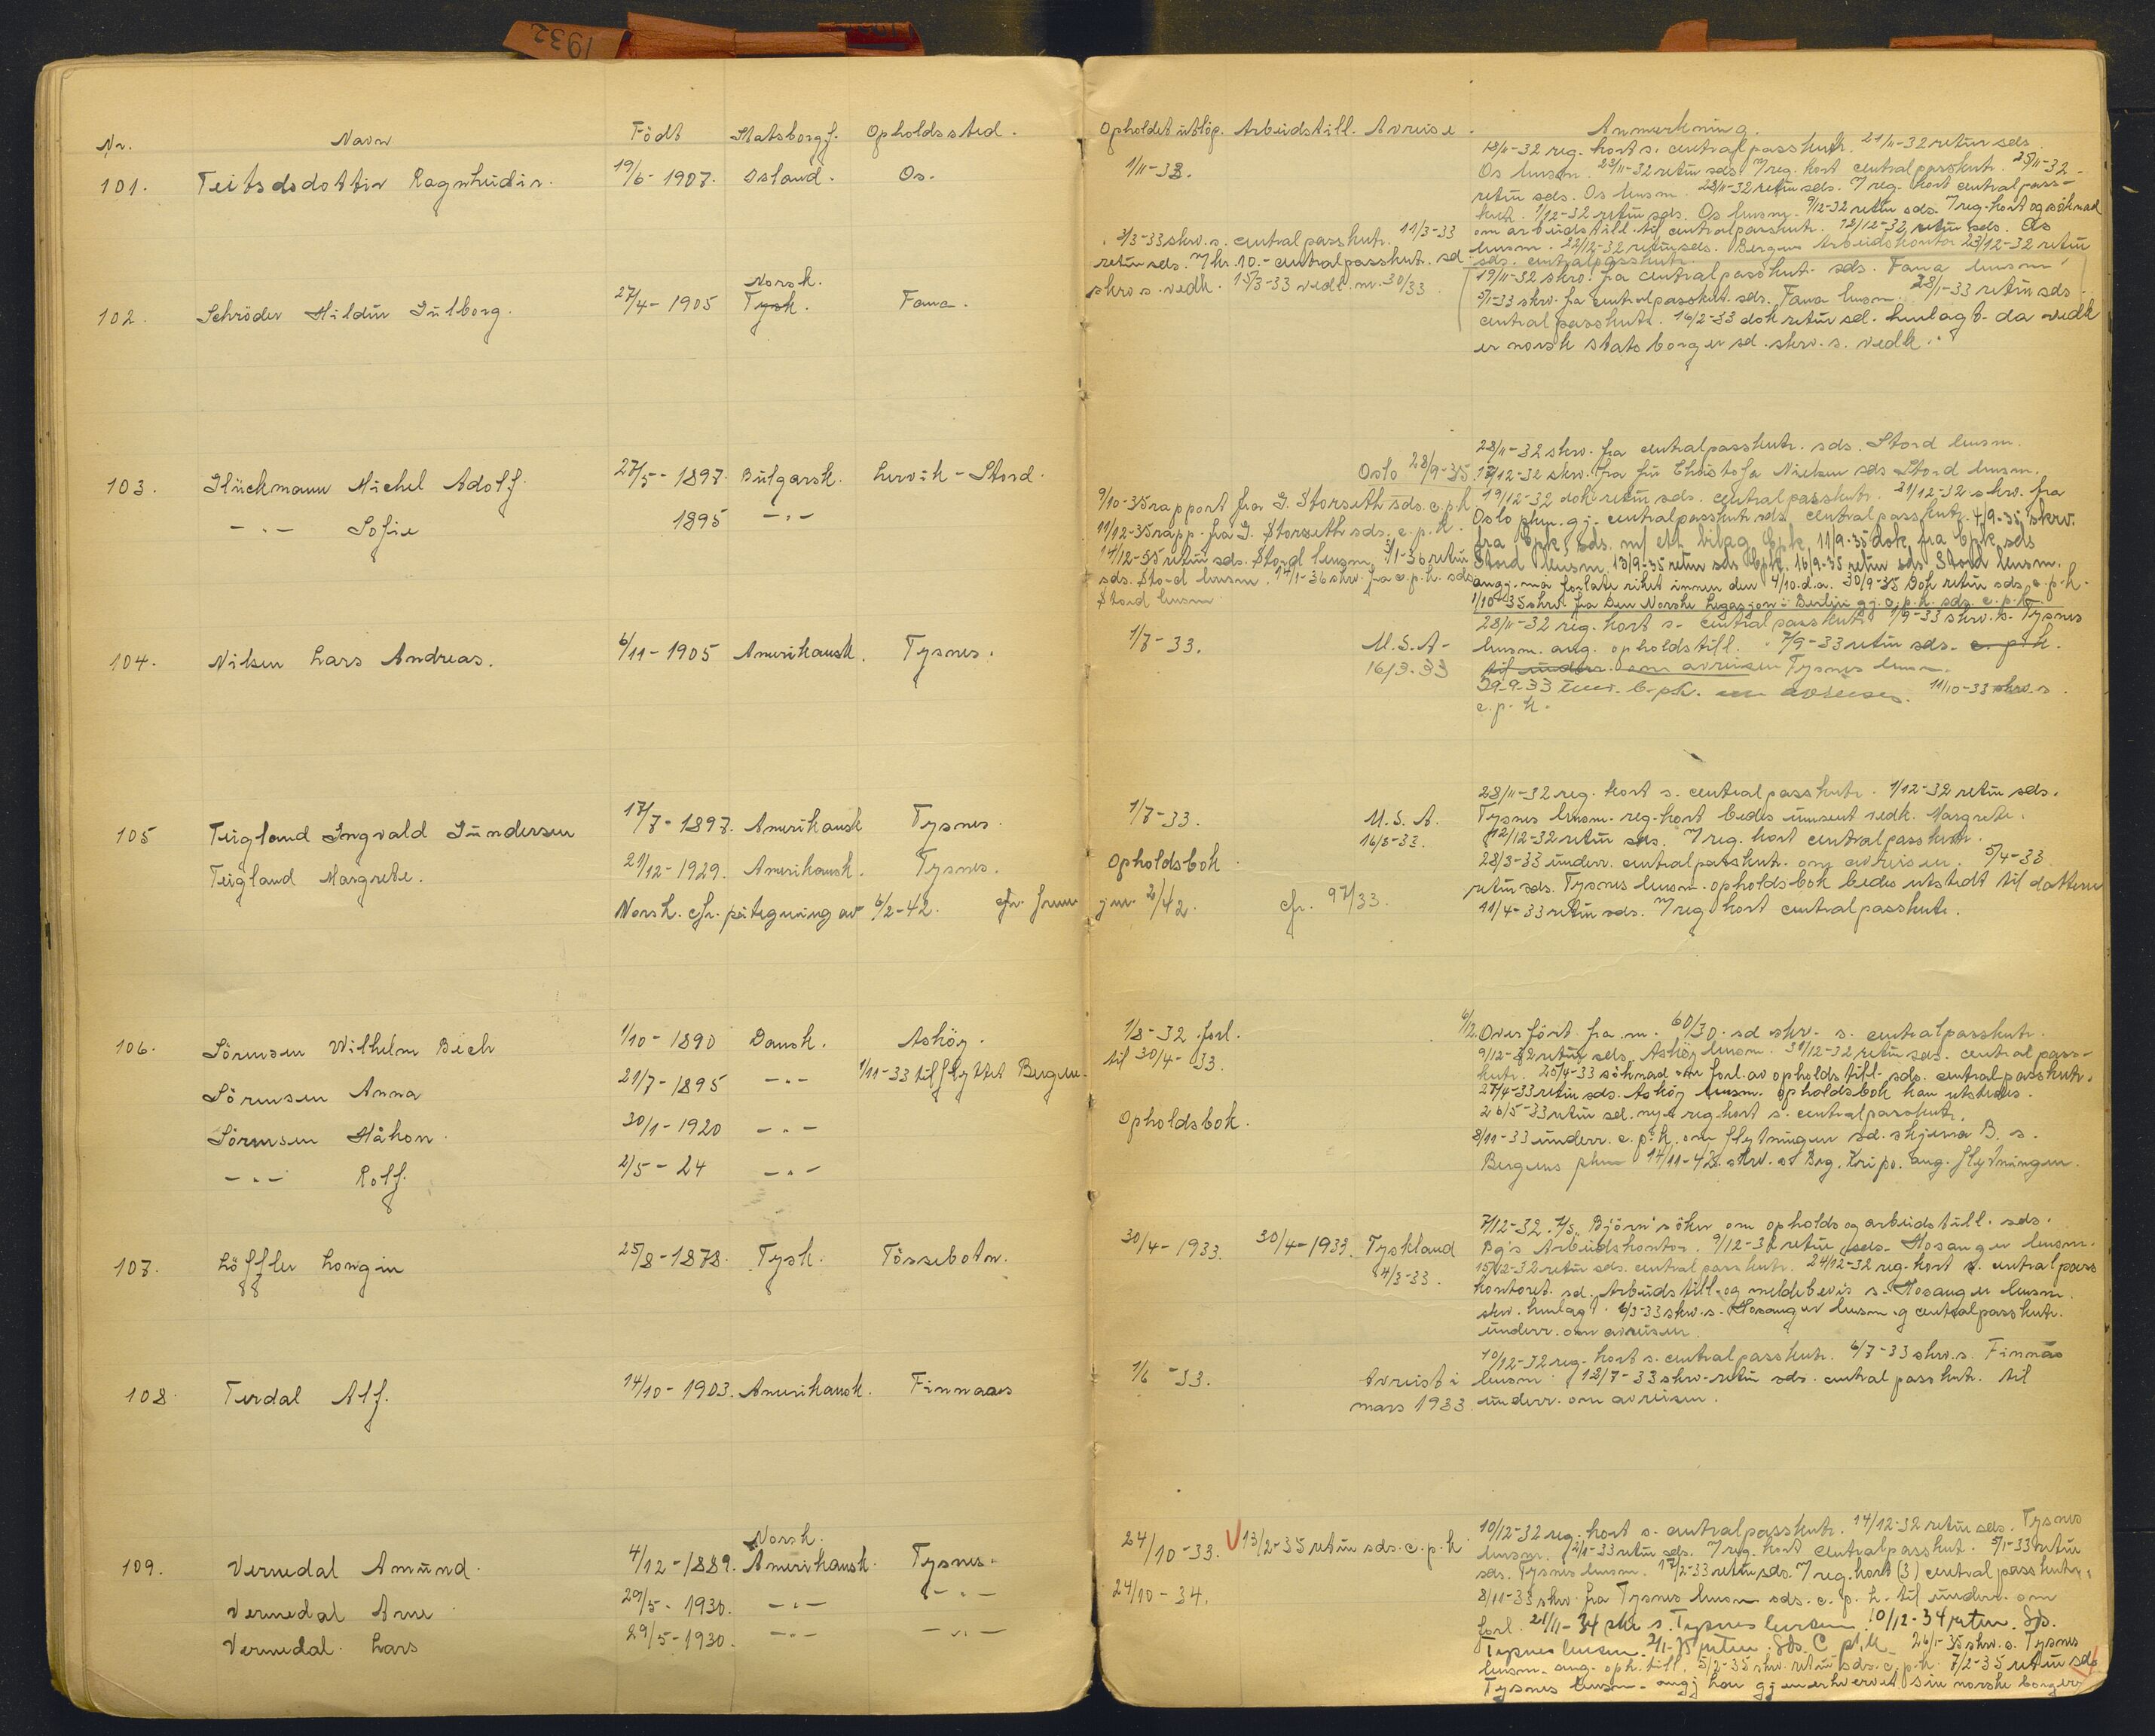 1932
Nr. Navn Födt Statsborgf. Opholdssted.
101. Teitsdsdottir Ragnheidir. 19/6-1907. Island. Os.
Norsk.
102. Schröder Hildur Gulborg. 27/4-1905 Tysk. Fana.
103. Glückmann Michel Adolf. 27/5-1897. Bulgarsk. Lervik-Stord.
-"- Sofie 1895 -"-
104. Nilsen Lars Andreas. 6/11-1905 Amerikansk. Tysnes.
105 Teigland Ingvald Gundersen 17/7-1897. Amerikansk Tysnes.
Teigland Margrete. 21/12-1929. Amerikansk. Tysnes.
Norsk. cfr. påtegning av 6/2-42. cfr.
106. Sörensen Wilhelm Bech 1/10-1890 Dansk. Asköy.
Sörensen Anna 21/7-1895 -"- 1/11-33 tilflyttet Bergen.
Sörensen Håkon. 30/1-1920 -"-
-"- Rolf. 2/5-24 -"-
107. Löffler Longin 25/8-1878. Tysk. Tössebotn.
108. Terdal Alf. 14/10-1903. Amerikansk. Finnaas
Norsk.
109. Vernedal Amund. 4/12-1889. Amerikansk. Tysnes.
Vernedal Arne 29/5-1930. -"- -"-
Vernedal. Lars 29/5-1930. -"- -"-
Opholdet utlöp. Arbeidstill. Avreise. Anmerkning.
18/11-32 reg. kort s. centralpasskntr. 21/11-32 retur sds.
1/11-33. Os lensm. 23/11-32 retur sds m/reg. kort centralpasskntr. 25/11-32
retur sds. Os lensm. 28/11-32 retur sds. m/reg. kort centralpass-
kntr. 1/12-32 retur sds. Os lensm. 9/12-32 retur sds. m/reg. kort og söknad
om arbeidstill. til centralpasskntr. 12/12-32 retur sds. Os
lensm. 22/12-32 retur sds. Bergens Arbeidskontor 23/12-32 retur
sds. centralpasskntr.
3/3-33 skrv. s. centralpasskntr. 11/3-33
retur sds. m/kr. 10.- centralpasskntr. sd.
skrv s. vedk. 15/3-33 vedl. nr. 30/33
19/11-32 skrv. fra centralpasskntr. sds. Fana lensm
3/1-33 skrv. fra centralpasskntr. sds. Fana lensm. 28/1-33 retur sds.
centralpasskntr. 16/2-33 dok retur sd. henlagt da vedk
er norsk statsborger sd. skrv. s. vedk.
28/11-32 skrv. fra centralpasskntr. sds. Stord lensm.
Oslo 28/9-35. 17/12-32 skrv. fra fru Christofa Nielsen sds Stord lensm.
19/12-32 dok retur sds. centralpasskntr. 31/12-32 skrv. fra
Oslo pkm. gj. centralpasskntr sds centralpasskntr. 4/9-35 skrv.
fra Cpk, sds. m/ ett bilag Cpk. 11/9-35 dok fra Cpk. sds
Stord lensm. 13/9-35 retur sds Cpk. 16/9-35 retur sds Stord lensm.
ang. må forlate riket innen den 4/10. d.a. 30/9-35 Dok retur sds, c.p.k.
1/10-35 skrv. fra Den Norske Legasjon i Berlin gj. c.p.k. sds. c.p.k.
9/10-35 rapport fra G. Storseth sds. c.p.k
11/12-35 rapp. fra G. Storseth sds. c.p.k.
14/12-35 retur sds. Stord lensm. 3/1-36 retur
sds. Stord lensm. 17/1-36 skrv. fra c.p.k. sds
Stord lensm.
28/11-32 reg. kort s. centralpasskntr. 1/9-33 skrv. s. Tysnes
1/7-33. U.S.A- lensm. ang. opholdstill. 7/9-33 retur sds. c.p.k.
16/3-33 til underr. om avreisen Tysnes lensm.
29-9-33 C.pk. om avreisen. 11/10-33 skrv. s.
c.p.k.
28/11-32 reg. kort s. centralpasskntr. 1/12-32 retur sds.
1/7-33. U.S.A. Tysnes lensm. reg. kort bedes innsent vedk. Margrete.
16/3-33. 12/12-32 retur sds. m/reg. kort centralpasskntr.
Opholdsbok. 28/3-33 underr. centralpasskntr. om avreisen. 5/4-33
retur sds. Tysnes lensm. opholdsbok bedes utstedt til datteren
jnr. 2/42. cfr. 97/33. 11/4-33 retur sds. m/reg kort centralpasskntr.
1/8-32 forl. 6/12. Overfört fra nr. 60/30. sd skrv. s. centralpasskntr.
til 30/4-33. 9/12-32 retur sds. Asköy lensm. 31/12-32 retur sds. centralpass-
kntr. 25/4-33 söknad om forl. av opholdstill. sds. centralpasskntr.
27/4-33 retur sds. Asköy lensm. opholdsbok kan utstedes.
Opholdsbok. 26/5-33 retur sd. nye reg kort s. centralpasskntr.
8/11-33 underr. c.p.k. om flytningen sd. skjema B. s.
Bergens pkm 14/11-42. skrv. s. Brg. Kripo. ang. flytningen.
7/12-32. A/S. Björn söker om opholds og arbeidstill. sds.
30/4-1933. 30/4-1933. Tyskland Bg's Arbeidskontor. 9/12-32 retur sds. Hosanger lensm.
4/3-33. 15/12-32 retur sds. centralpasskntr. 24/12-32 reg. kort s. centralpass
kontoret. sd. Arbeidstill. og meldebevis s. Hosanger lensm.
skrv. henlagt. 6/3-33 skrv. s. Hosanger lensm. og centralpasskntr.
underr. om avreisen.
10/12-32 reg. kort s. centralpasskntr. 6/7-33 skrv. s. Finnås
1/6-33. Avreist i lensm. 12/7-33 skrv. retur sds. centralpasskntr. til
mars 1933. underr. om avreisen.
10/12-32 reg. kort s. centralpasskntr. 14/12-32 retur sds. Tysnes
24/10-33. 13/2-35 retur sds. c.p.k. lensm. 2/1-33 retur sds. m/reg. kort centralpasskntr. 5/1-33 retur
sds. Tysnes lensm. 17/2-33 retur sds. m/reg. kort (3) centralpasskntr.
24/10-34. 8/11-33 skrv. fra Tysnes lensm sds. c.p.k. til underr. om
forl. 21/11-34 skr. s. Tysnes lensm. 10/12-34 retur. sds.
Tysnes lensm. 2/1-35 retur. sds. C p.k 26/1-35 skrv. s. Tysnes
lensm. ang. oph. till. 5/2-35 skrv. retur sds. c.p.k. 7/2-35 retur sds
Tysnes lensm. angj han gjenerhvervet sin norske borgerr